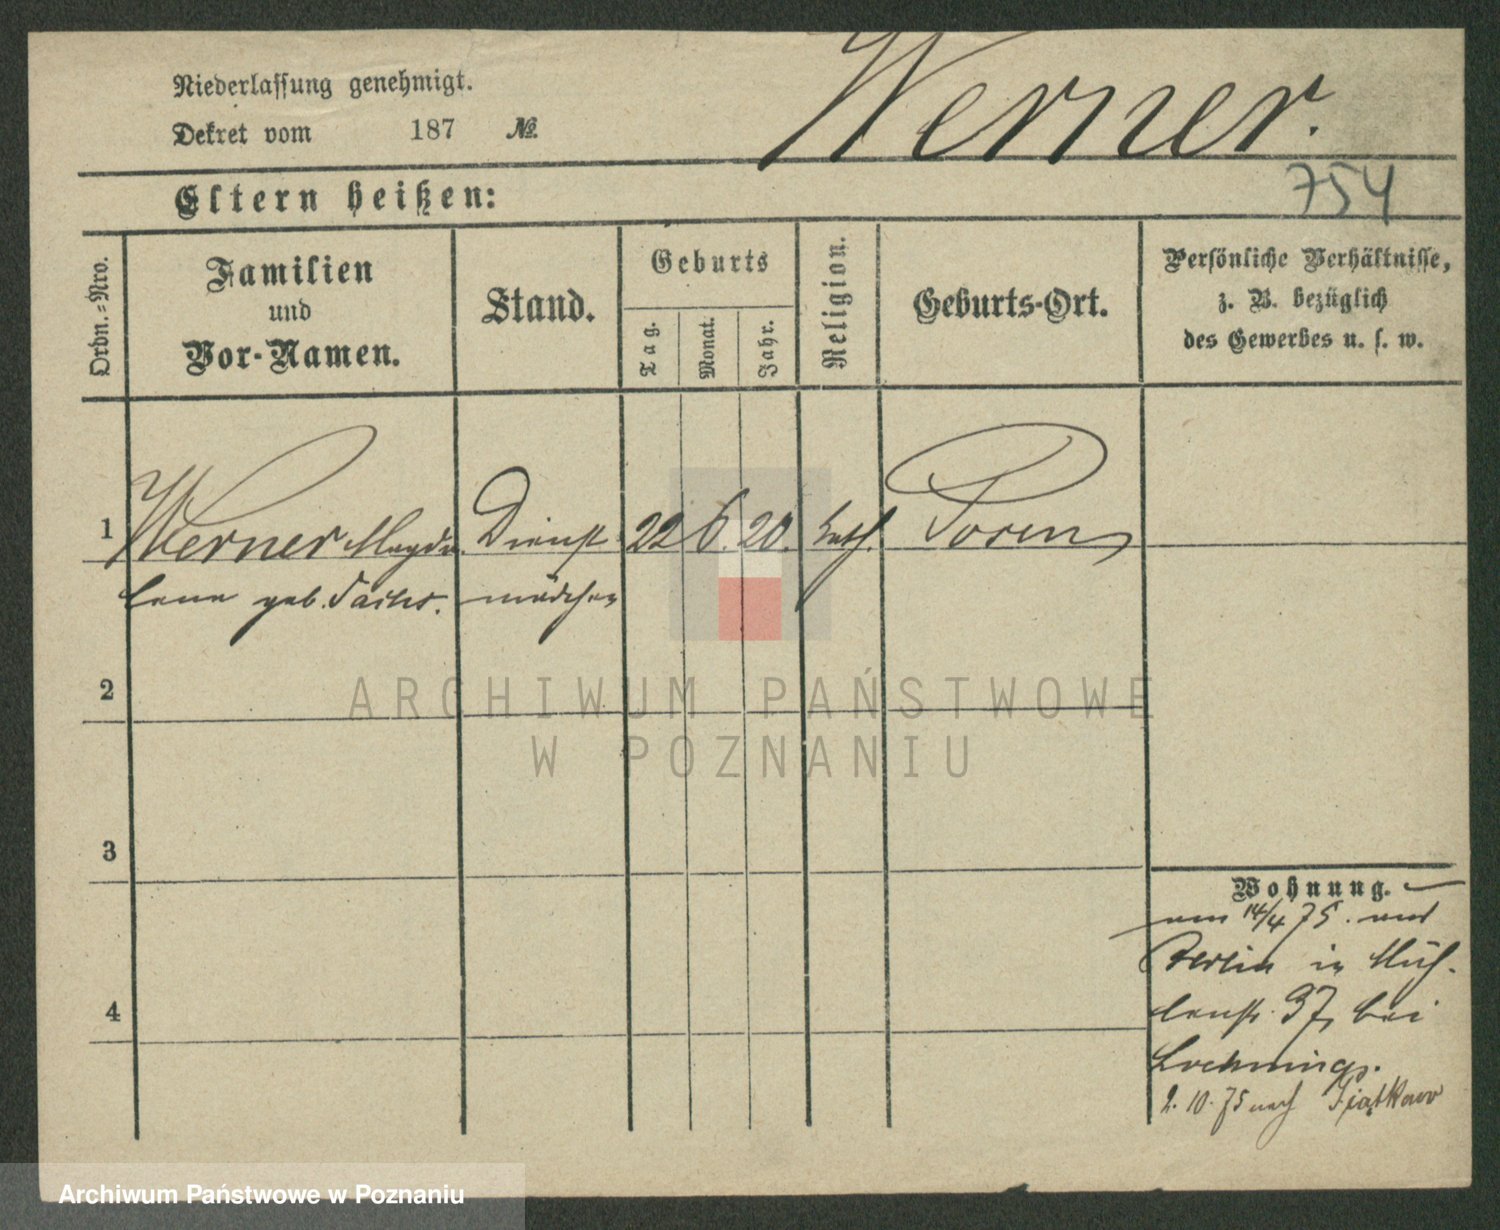 Niederlassung genehmigt.
Werner.
Dekret vom 187 №.
754
Eltern heißen:
Ordn.-Nro.
Familien
und
Vor-Namen.
Stand.
Geburts
Tag.
Monat.
Jahr.
Religion.
Geburts-Ort.
Persönliche Verhältnisse,
z. B. bezüglich
des Gewerbes u. s. w.
1 Werner Magda- Dienst 22 6. 20. kath. Posen
lena geb. mädchen
2
3
4
Wohnung.
14/4 75.
Berlin in Müh-
lenstr. 37, bei
2. 10. 75 nach Piątkowo
ARCHIWUM PAŃSTWOWE
W POZNANIU
Archiwum Państwowe w Poznaniu